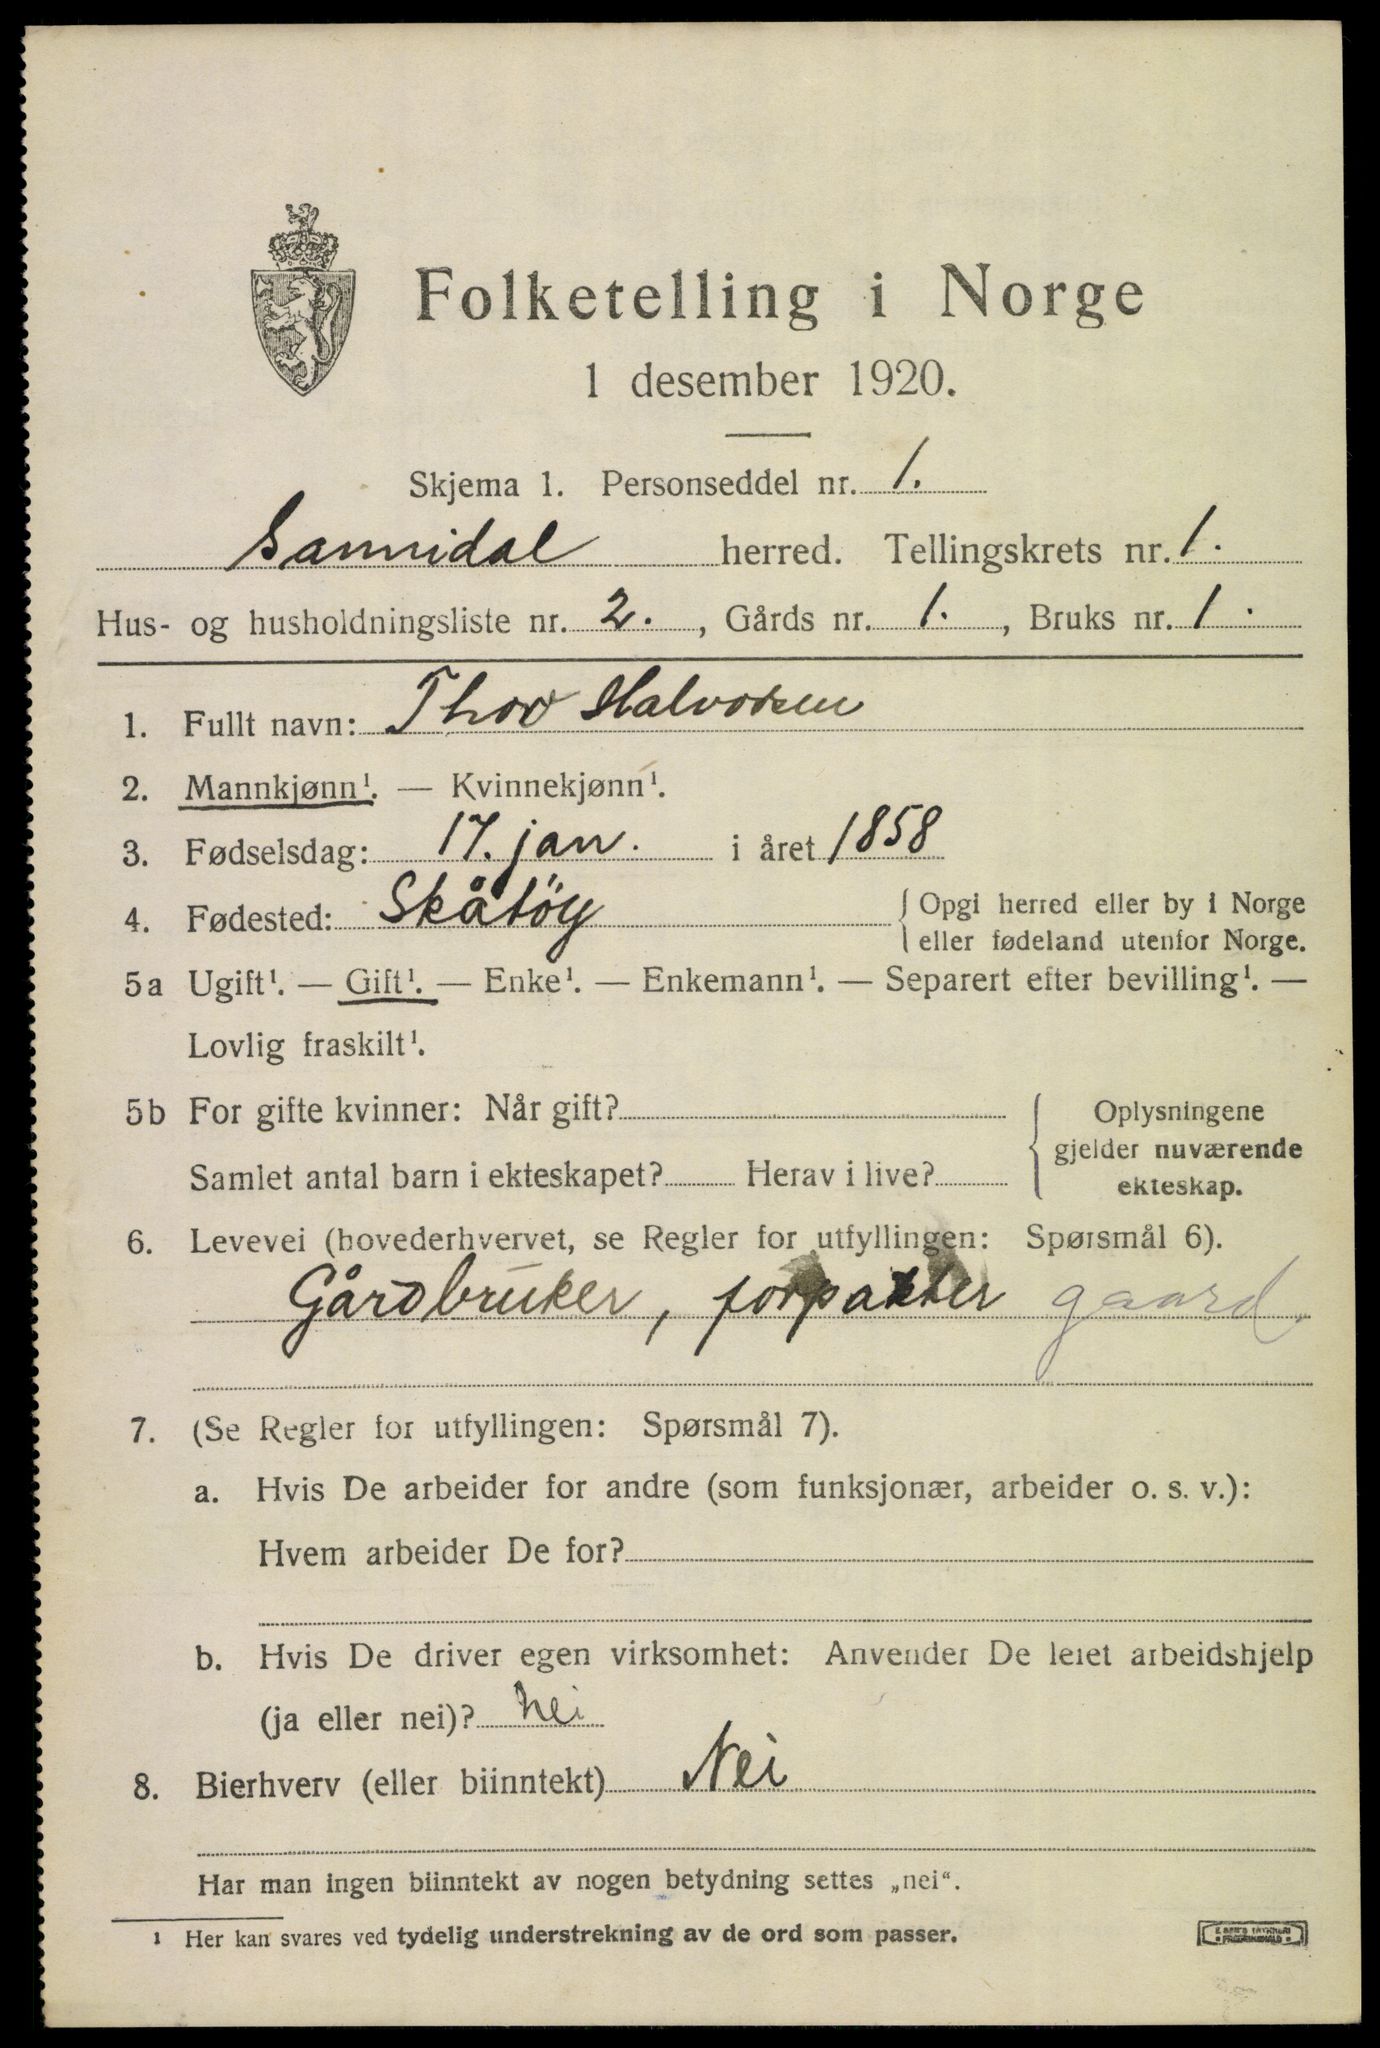 Folketelling i Norge
1 desember 1920.
Skjema 1. Personseddel nr. 1.
Sannidal herred. Tellingskrets nr. 1.
Hus- og husholdningsliste nr. 2. , Gårds nr. 1. , Bruks nr. 1.
1. Fullt navn: Thor Halvorsen
2. Mannkjønn¹. — Kvinnekjønn¹.
3. Fødselsdag: 17. jan. i året 1858
4. Fødested: Skåtöy { Opgi herred eller by i Norge
eller fødeland utenfor Norge.
5a Ugift¹. — Gift¹. — Enke¹. — Enkemann¹. — Separert efter bevilling¹. —
Lovlig fraskilt¹.
5b For gifte kvinner: Når gift? { Oplysningene
gjelder nuværende
Samlet antal barn i ekteskapet? Herav i live?
ekteskap.
6. Levevei (hovederhvervet, se Regler for utfyllingen: Spørsmål 6).
Gårdbruker, forpakter gaard
7. (Se Regler for utfyllingen: Spørsmål 7).
a. Hvis De arbeider for andre (som funksjonær, arbeider o. s. v.):
Hvem arbeider De for?
b. Hvis De driver egen virksomhet: Anvender De leiet arbeidshjelp
(ja eller nei)? nei
8. Bierhverv (eller biinntekt) Nei
Har man ingen biinntekt av nogen betydning settes „nei“.
¹ Her kan svares ved tydelig understrekning av de ord som passer.